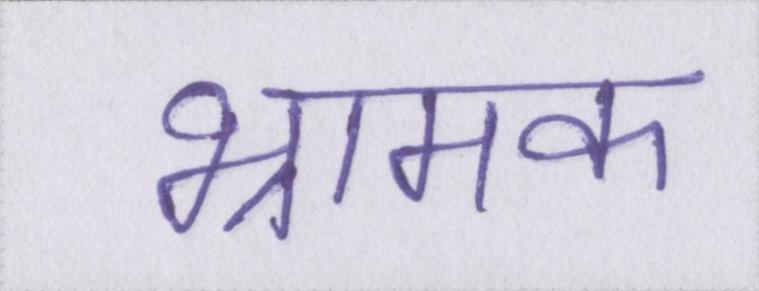 भ्रामक